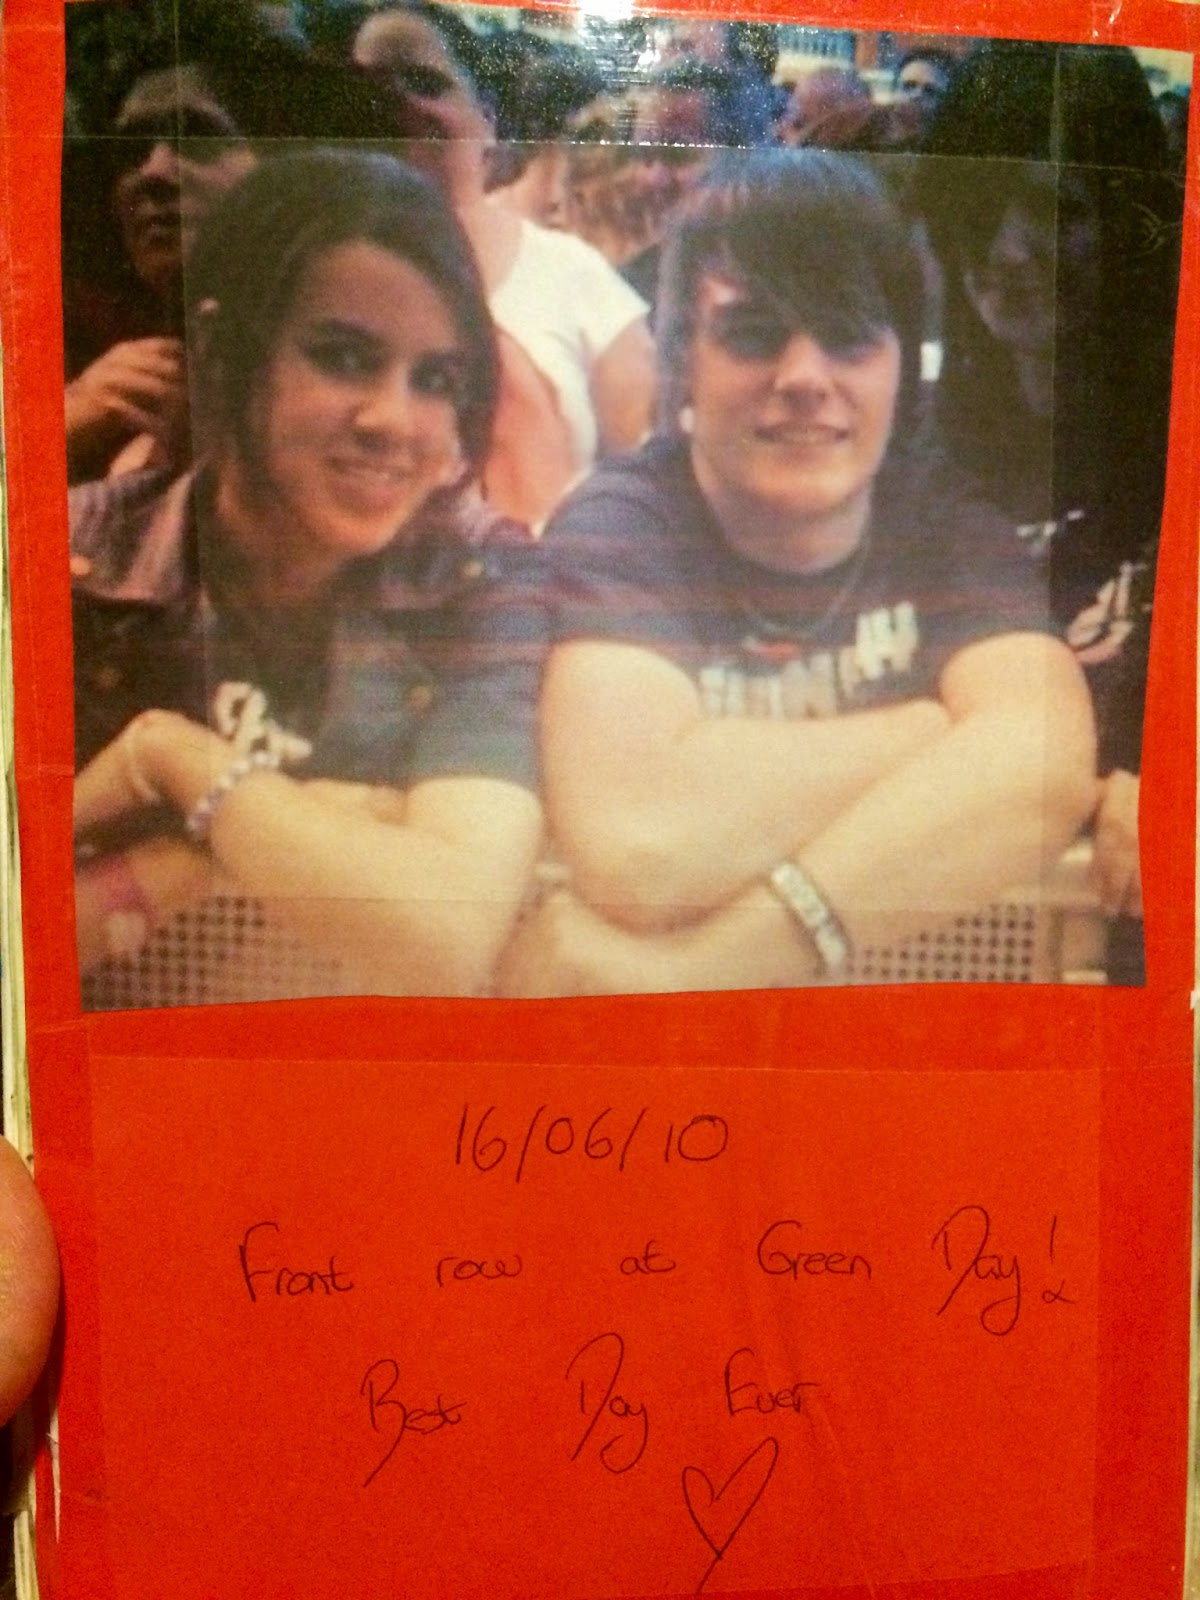 16/06/10
Front row at Green Day!
Best Day Ever